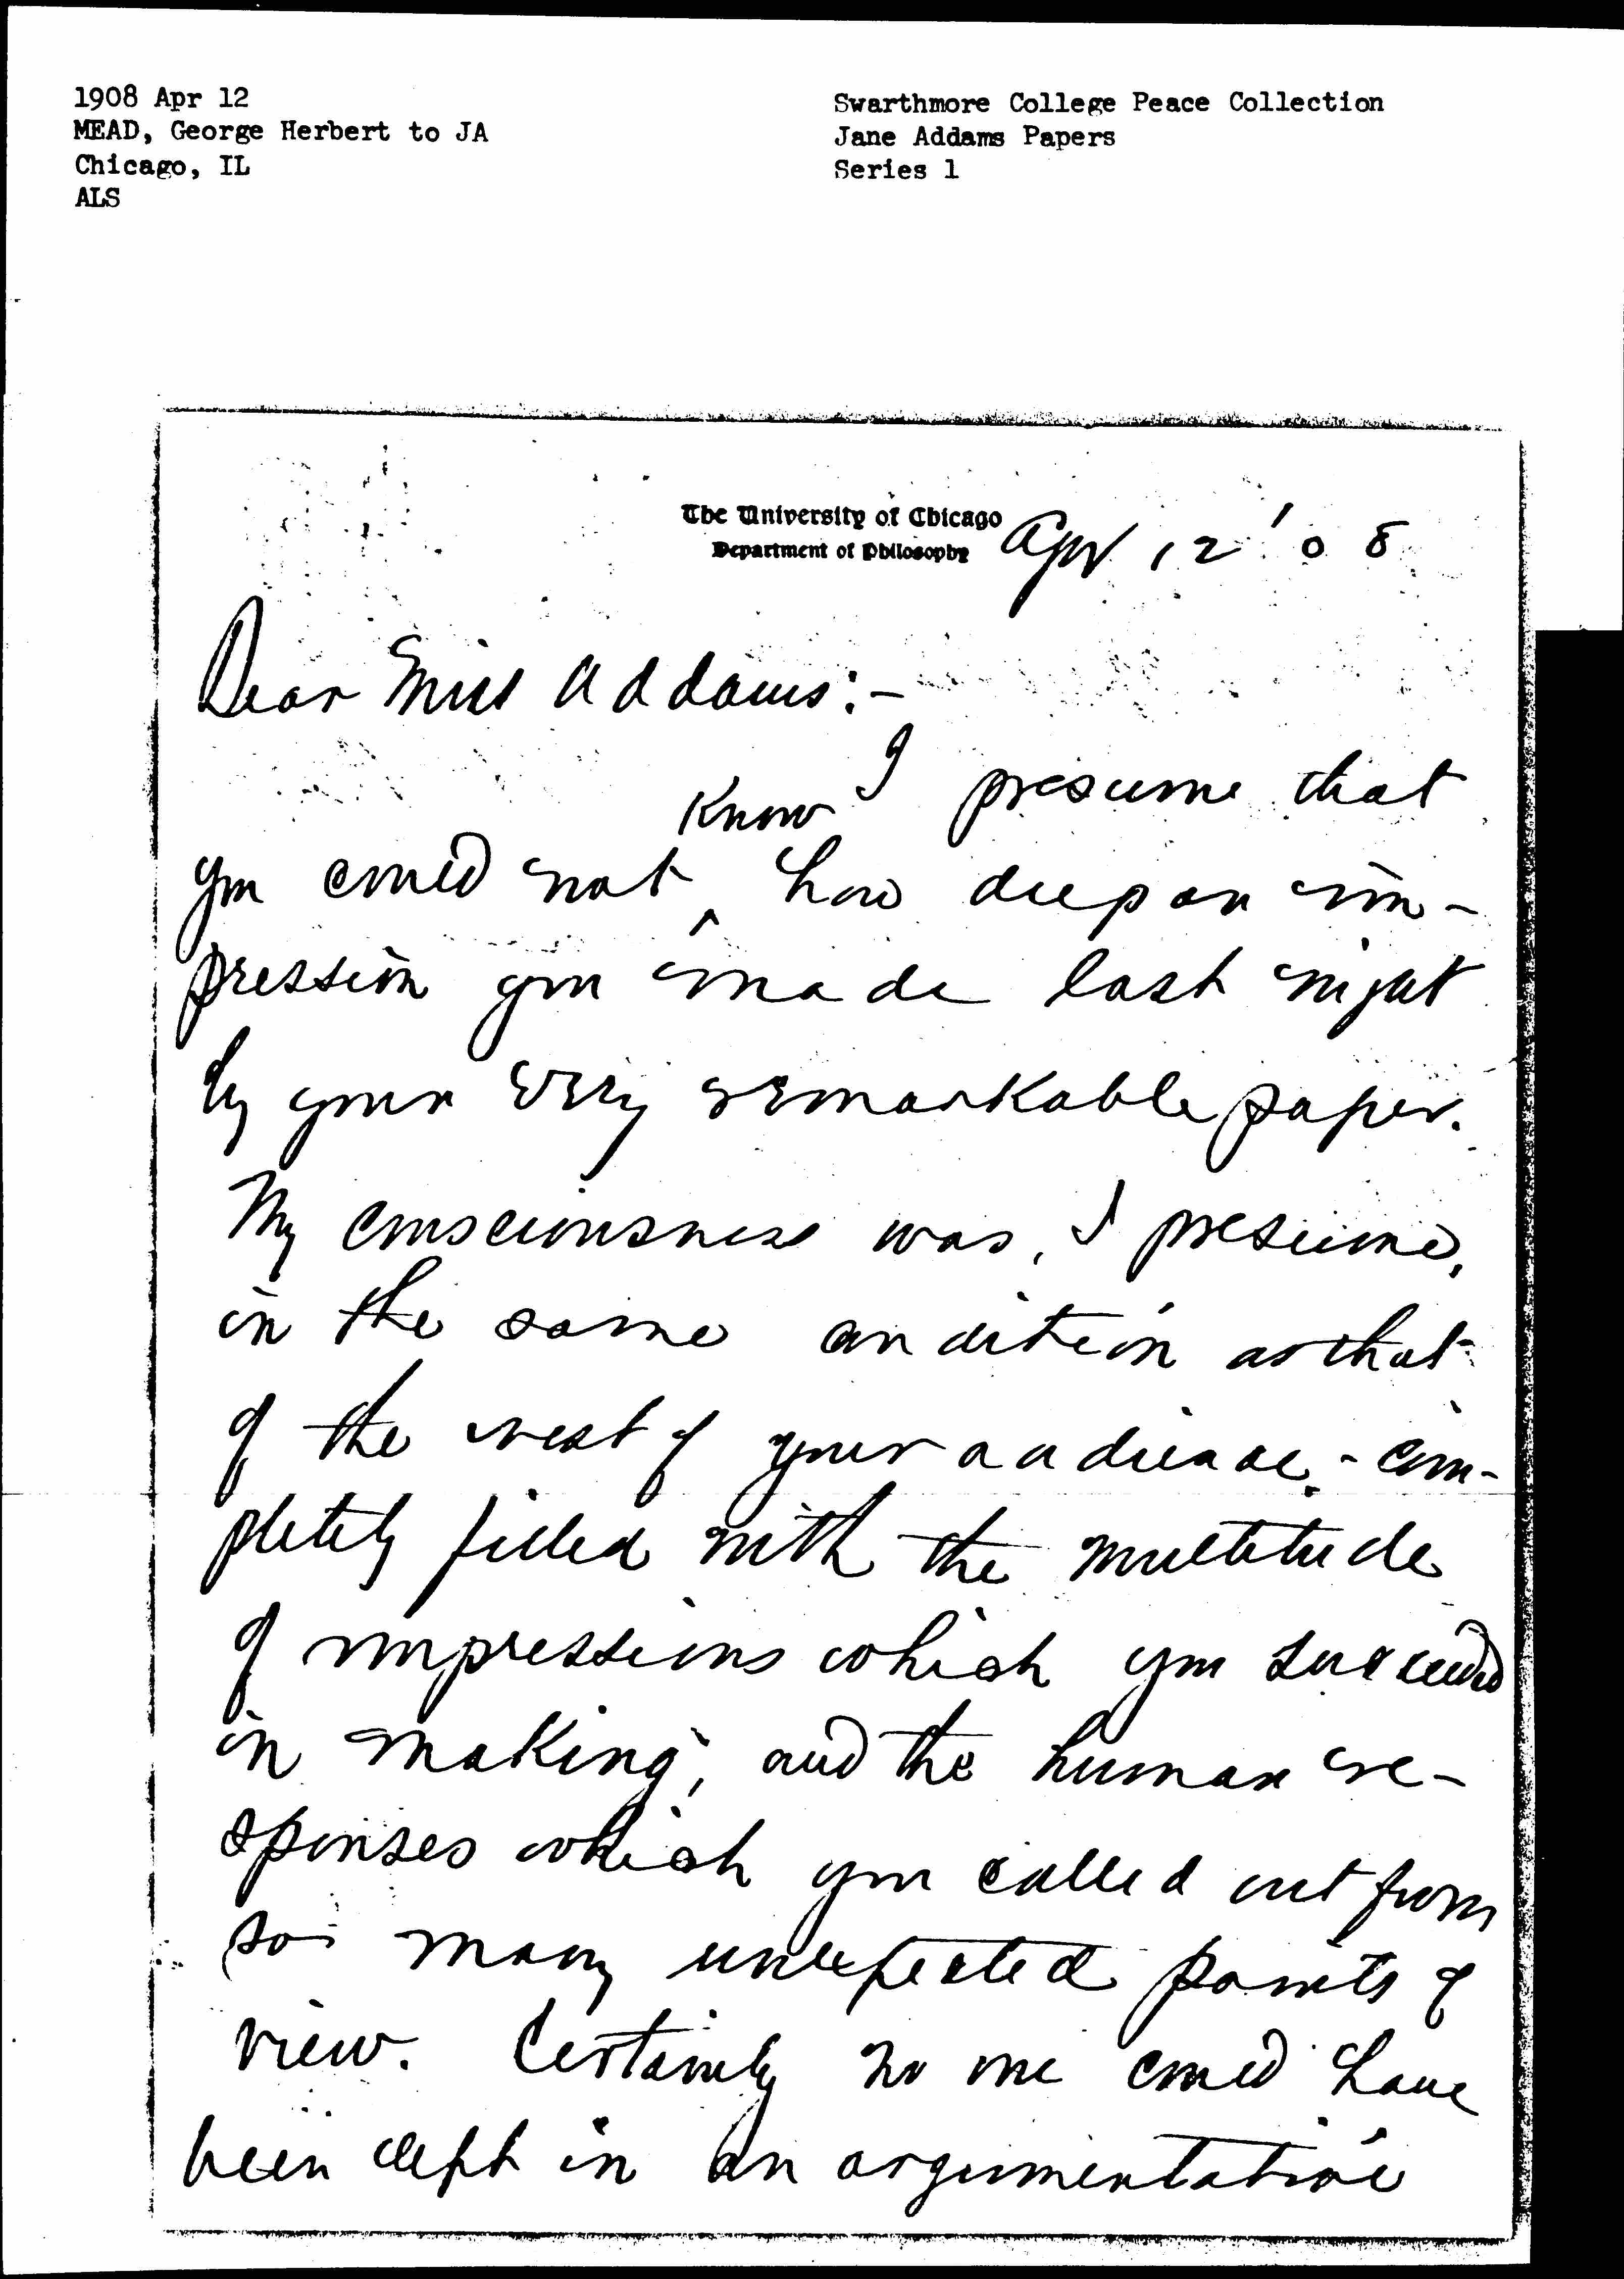 1908 Apr 12
MEAD, George Herbert to JA
Chicago, IL
ALS
Swarthmore College Peace Collection
Jane Addams Papers
Series 1
The University of Chicago
Department of Philosophy
Apr 12 '08
Dear Miss Addams:-
I presume that
you could not ^know how deep an im-
pression you made last night
by your very remarkable paper.
My consciousness was, I presume,
in the same condition as that
of the rest of your audience - com-
pletely filled with the multitude
of impressions which you succeeded
in making, and the human re-
sponses which you called out from
so many unexpected points of
view. Certainly no one could have
been left in an argumentative